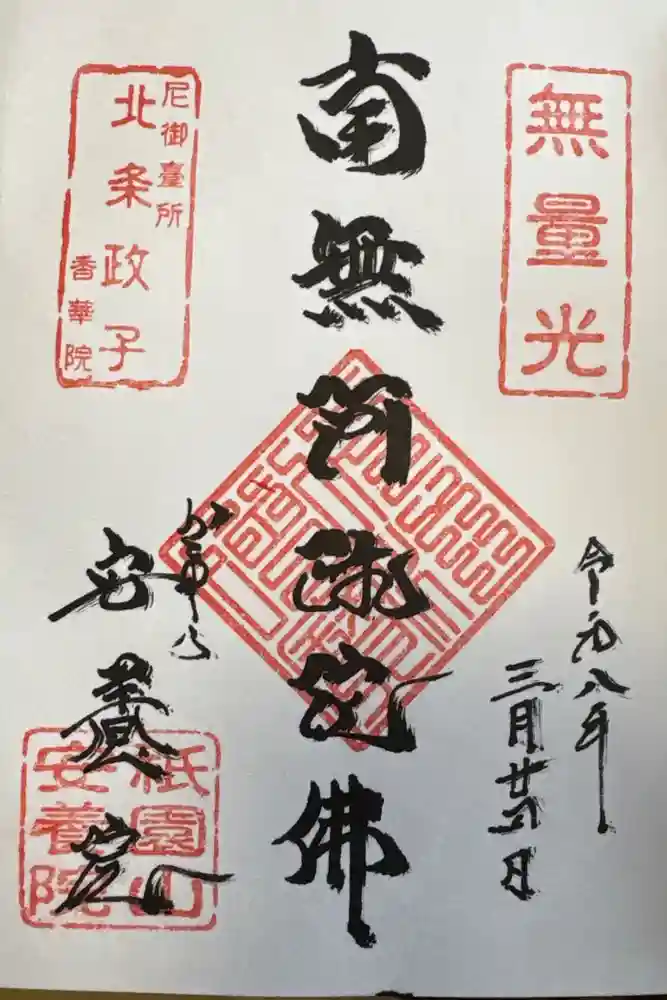 無量光
令和八年
三月廿 日
南無阿弥陀佛
尼御臺所
北条政子
香華院
安養院
祇園山
安養院